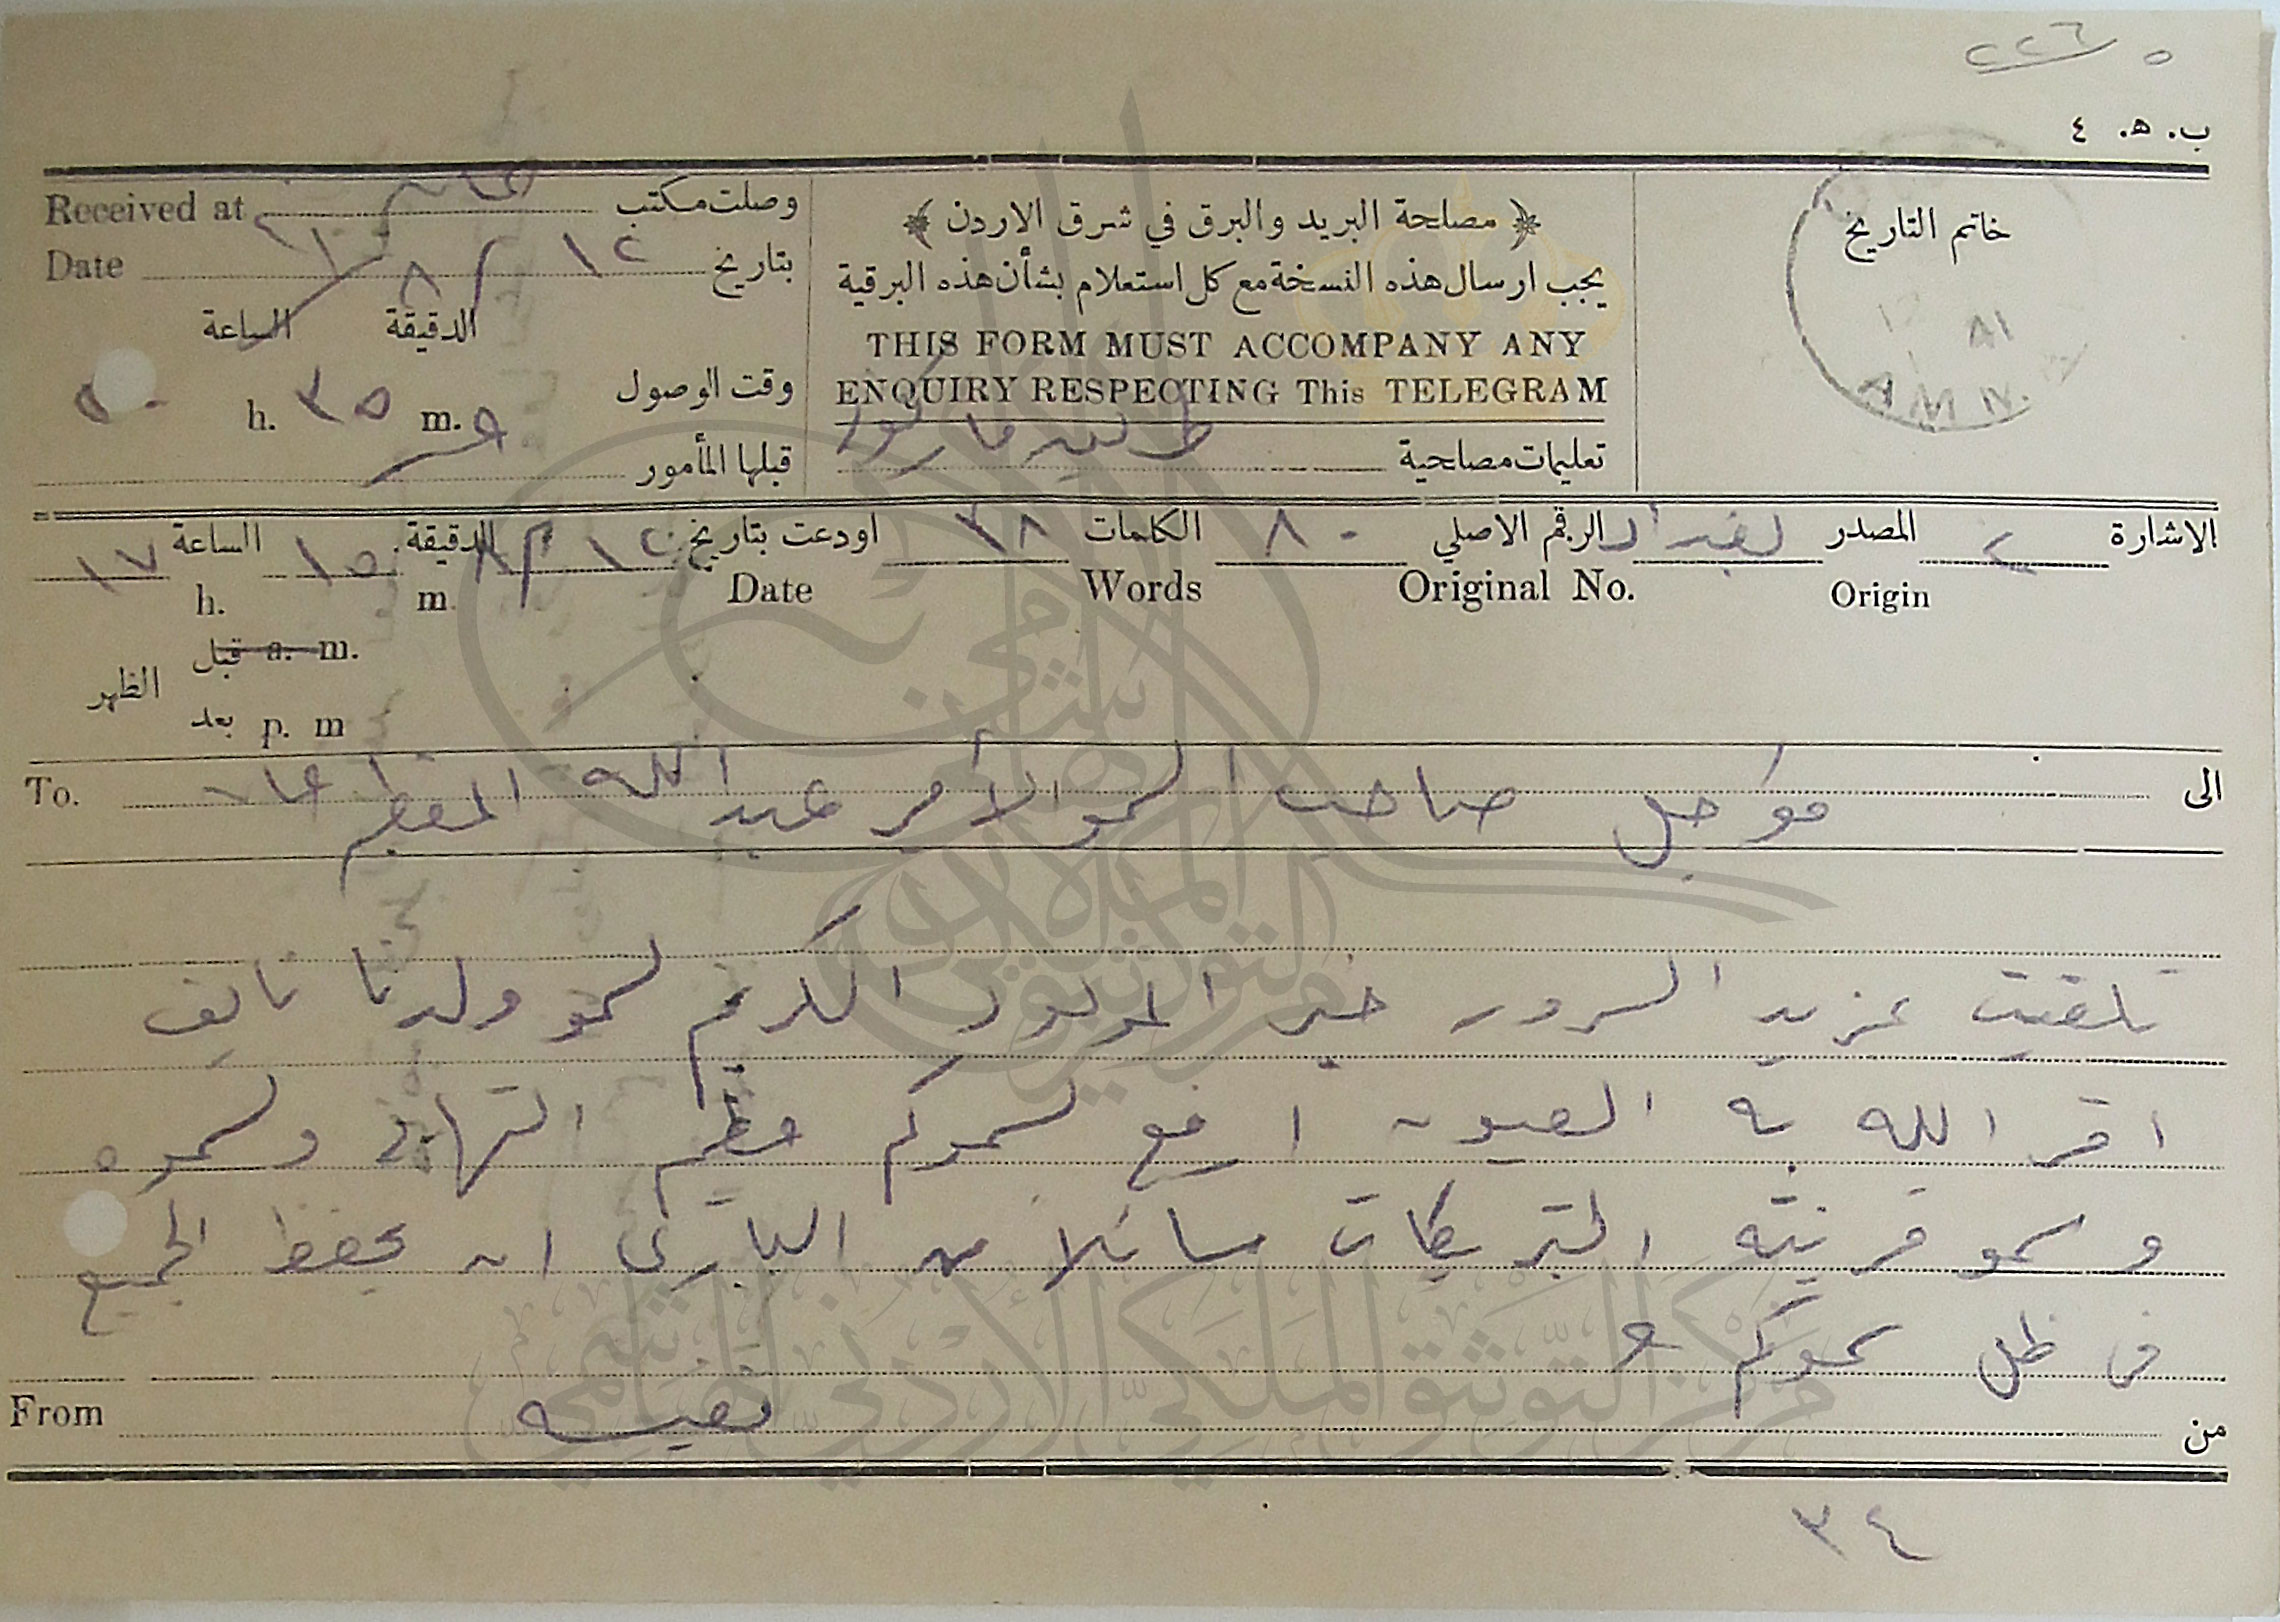 ٢٢٦ ٥
ب. ھ. ٤
Received at وصلت مكتب عمان
Date بتاريخ ١٢ / ٨ / ٤١
الساعة الدقيقة
h. ٣٥ m. وقت الوصول
قبلها المأمور
﴿ مصلحة البريد والبرق في شرق الاردن ﴾
يجب ارسال هذه النسخة مع كل استعلام بشأن هذه البرقية
THIS FORM MUST ACCOMPANY ANY
ENQUIRY RESPECTING This TELEGRAM
تعليمات مصلحية
خاتم التاريخ
AMN.
الاشارة المصدر بغداد الرقم الاصلي ٨٠ الكلمات ٣٨ اودعت بتاريخ ١٢ / ٨ الدقيقة ١٥ الساعة ١٧
Origin Original No. Words Date m h.
قبل a. m.
الظهر
بعد p. m
To. الى مؤجل صاحب السمو الأمير عبدالله المعظم عمان
تلقيت بمزيد السرور خبر المولود الكريم لسمو ولدنا نايف
اقر الله به العيون ارفع لسموكم عظيم التهاني ولسموه
وسمو قرينته التبريكات سائلا من الباري ان يحفظ الجميع
في ظل سموكم
From من نفيسه
٣٤
مركز التوثيق الملكي الأردني الهاشمي